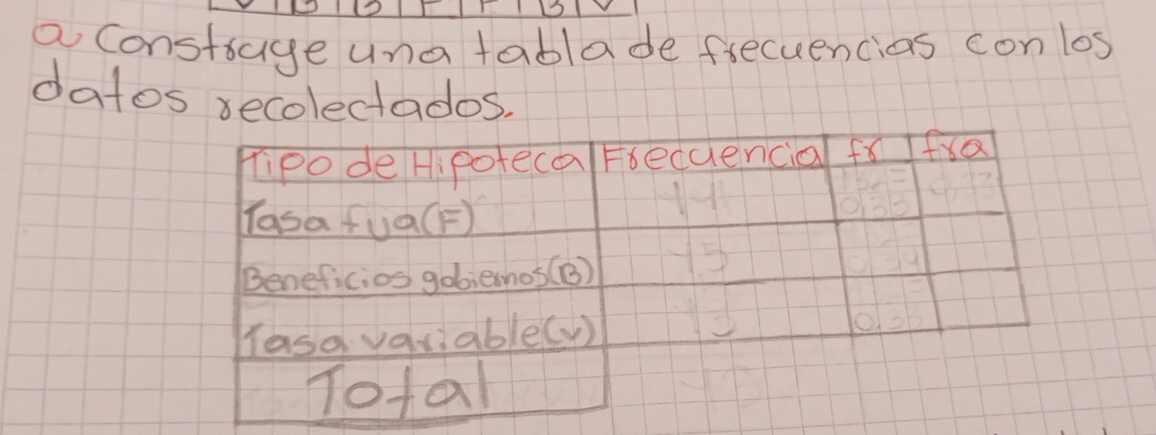 a Construye una tabla de frecuencias con los
datos recolectados.
Tipo de Hipoteca Frecuencia fr fra
Tasa fija (F)
0,33
Beneficios gobiernos (B)
Tasa variable (v)
Total